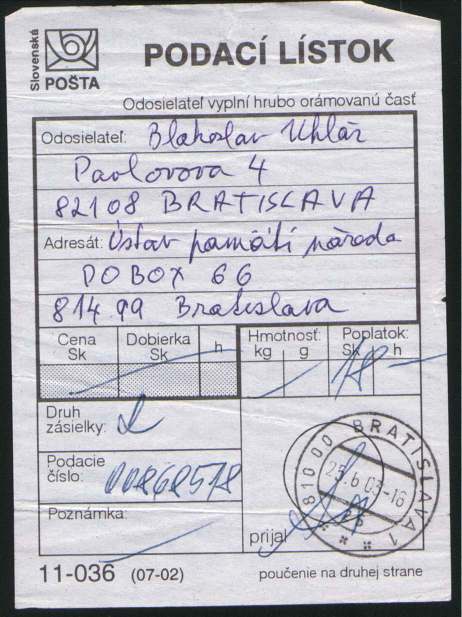 Slovenská
POŠTA
PODACÍ LÍSTOK
Odosielateľ vyplní hrubo orámovanú časť
Odosielateľ: Blahoslav Uhlár
Pavlovova 4
82108 BRATISLAVA
Adresát: Ústav pamäti národa
POBOX 66
814 99 Bratislava
Cena Dobierka Hmotnosť: Poplatok:
Sk Sk h kg g Sk h
18 -
Druh
zásielky:
Podacie
číslo: 00868578
Poznámka:
prijal
81000 BRATISLAVA 1
11-036 (07-02) poučenie na druhej strane